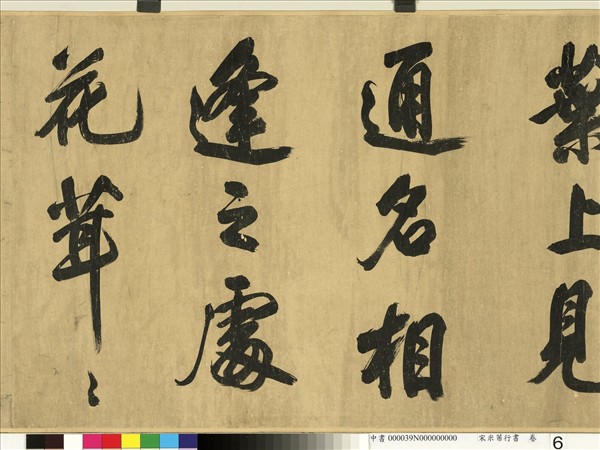 葉上見
通名相
逢之處
花茸〻
中書 000039N000000000 宋米芾行書 卷 6